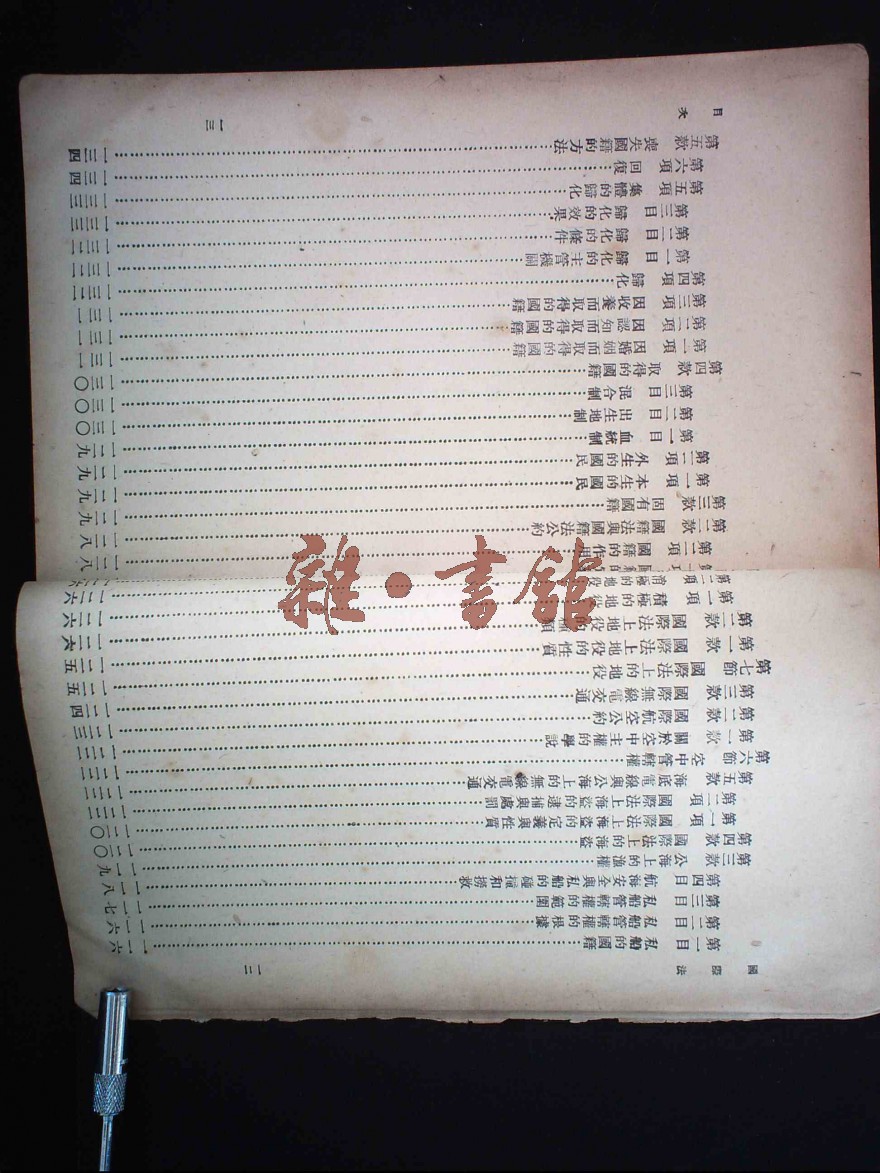 國際法
一二
第一目 私船的國籍 一一六
第二目 私船管轄權的根據 一一六
第三目 私船管轄權的範圍 一一七
第四目 航海安全與私船的碰撞和撈救 一一八
第三款 公海上的漁權 一一九
第四款 國際法上的海盜 一二〇
第一項 國際法上海盜的定義與性質 一二〇
第二項 國際法上海盜的逮捕與處罰
第五款 海底電線與公海上的無線電交通 一二二
第六節 空中管轄權 一二二
第一款 關於空中主權的學說 一二三
第二款 國際航空公約 一二四
第三款 國際無線電交通 一二五
第七節 國際法上的地役 一二五
第一款 國際法上地役的性質 一二六
第二款 國際法上地役的種類 一二六
第一項 積極的地役 一二六
第二項 消極的地役
目次
一三
第二項 國籍的作用 一二八
第二款 國籍法與國籍法公約 一二八
第三款 固有國籍 一二九
第一項 本生的國民 一二九
第二項 外生的國民 一二九
第一目 血統制 一二九
第二目 出生地制 一三〇
第三目 混合制 一三〇
第四款 取得的國籍 一三〇
第一項 因婚姻而取得的國籍 一三一
第二項 因認知而取得的國籍 一三一
第三項 因收養而取得的國籍 一三一
第四項 歸化 一三二
第一目 歸化的主管機關 一三二
第二目 歸化的條件 一三二
第三目 歸化的效果 一三三
第五項 集體的歸化 一三三
第六項 回復 一三四
第五款 喪失國籍的方法 一三四
雜·書館